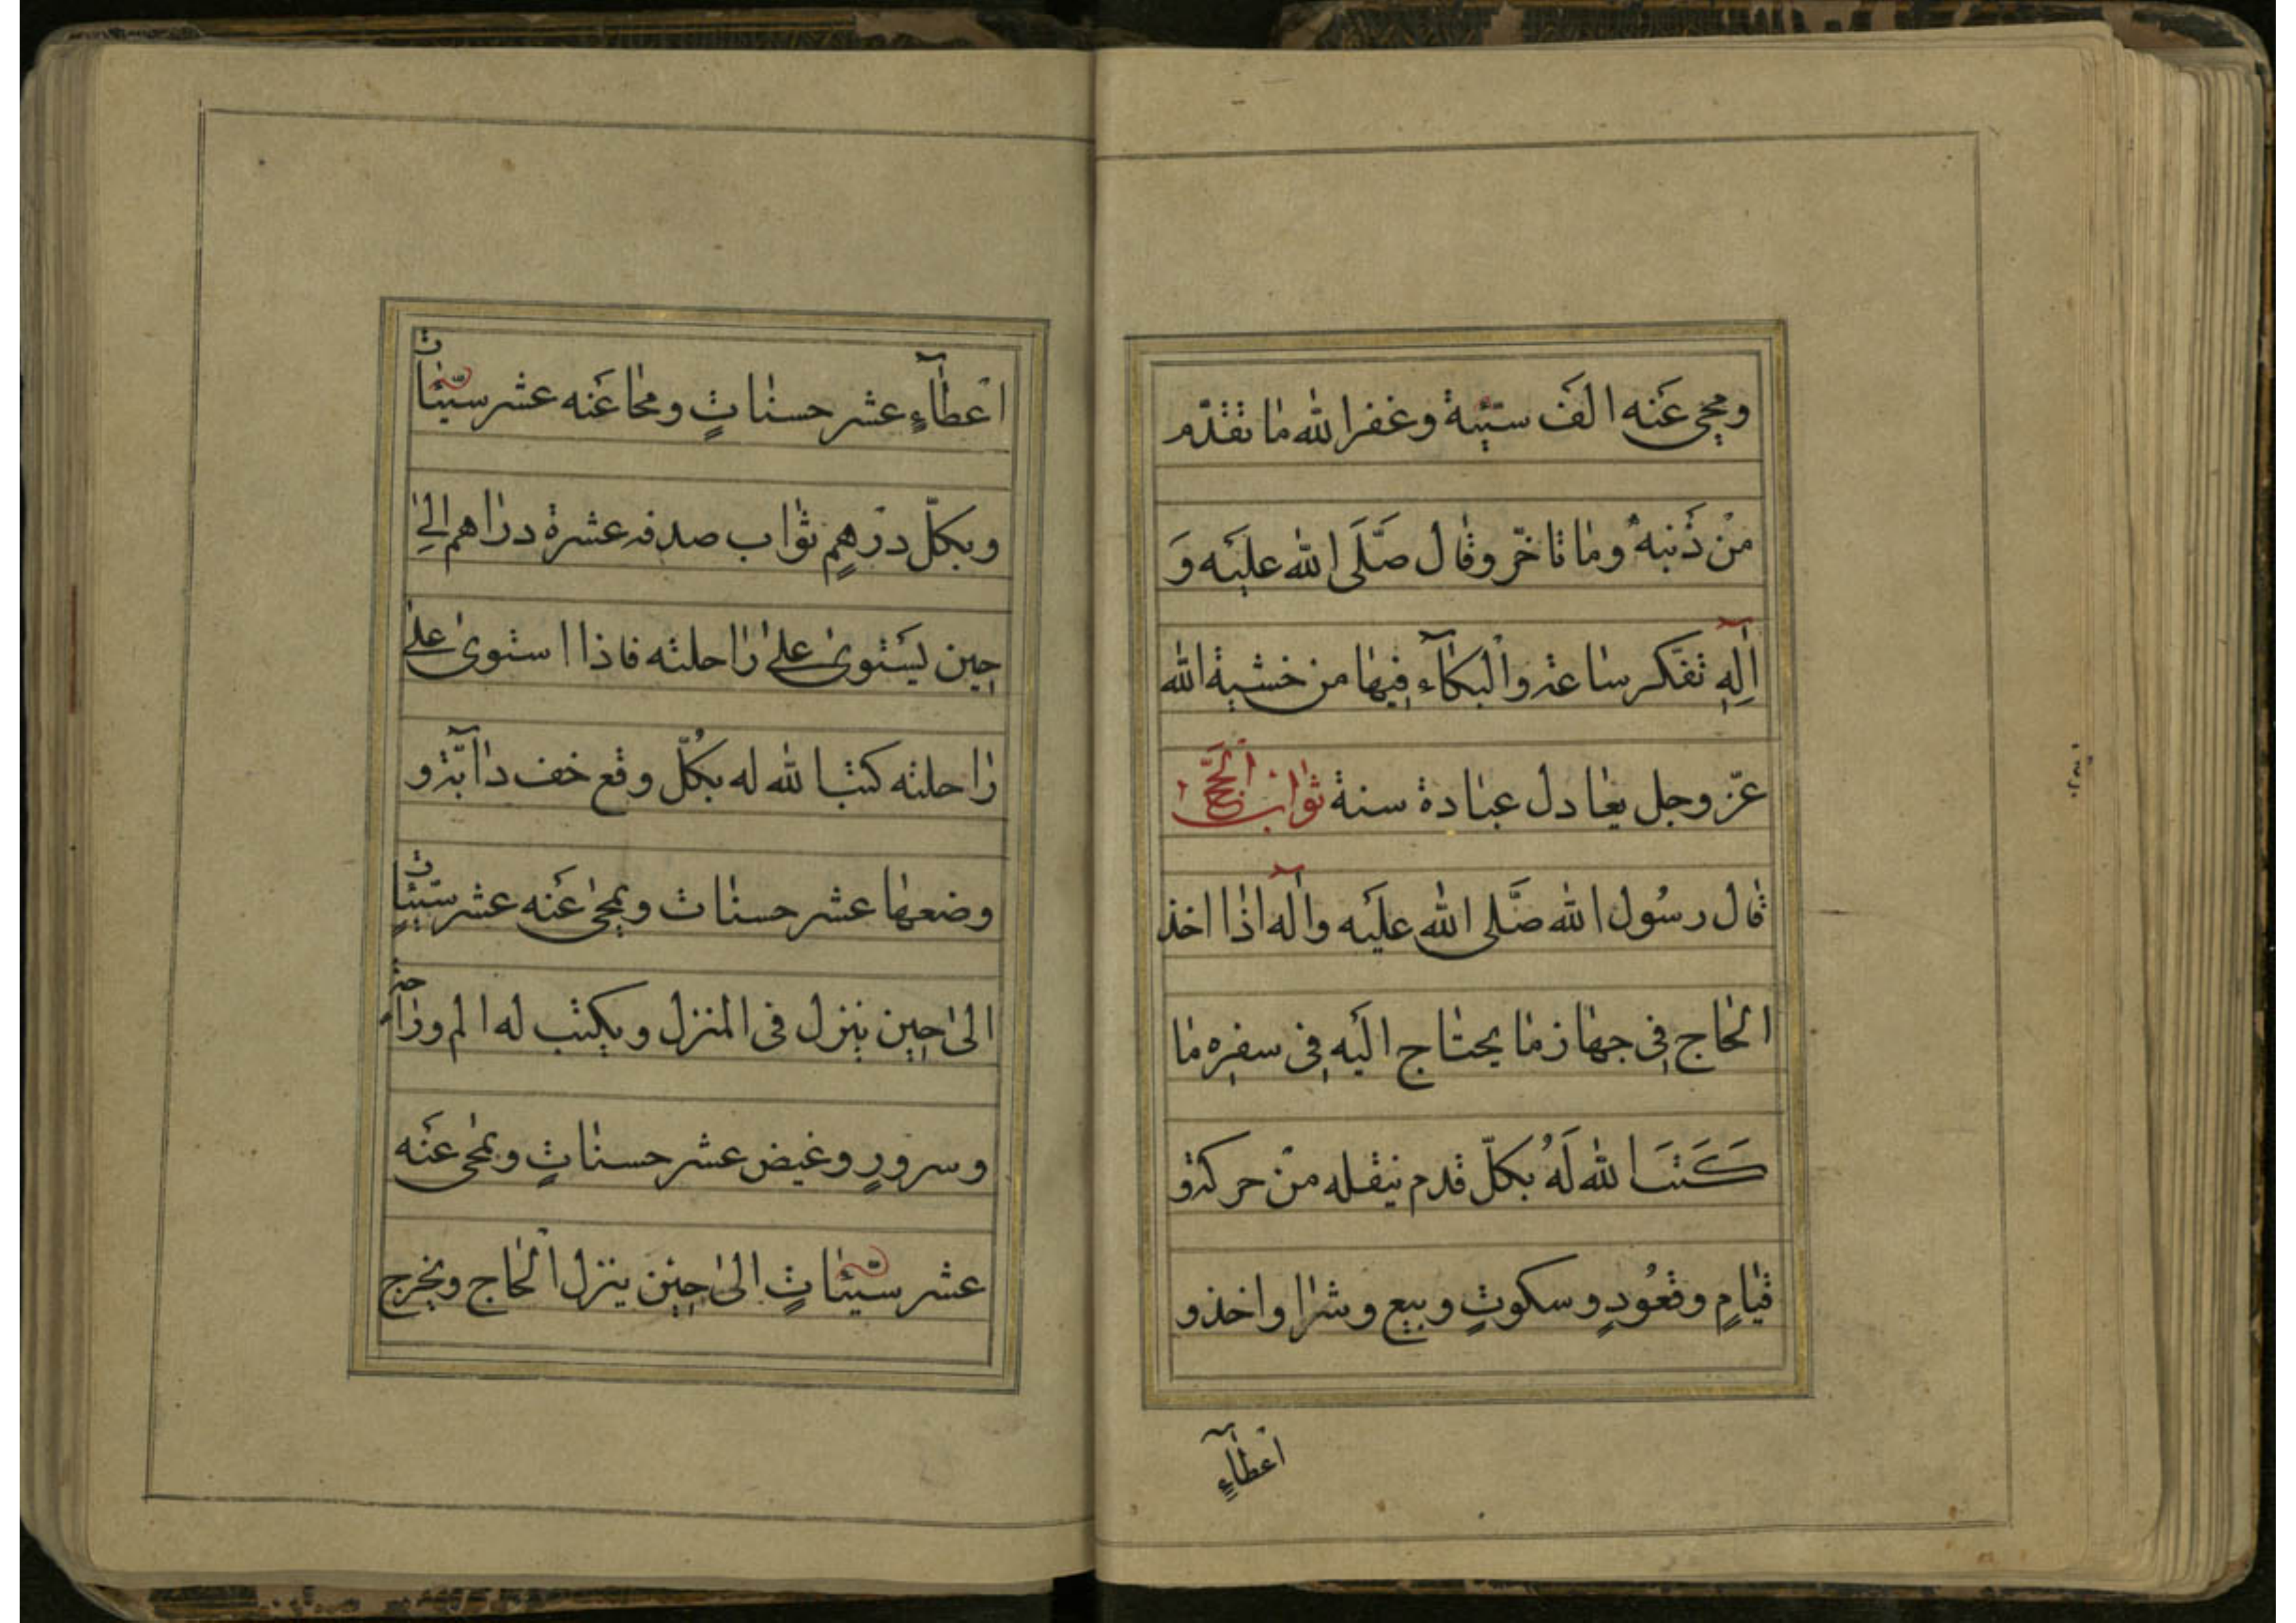 ومحی عَنه الَف سیّئة وغفرا لله مٰا تقدّم
منْ ذَنبهُ ومٰا تاخّر وقٰال صَلَّی الله علیَه وَ
اٰلِهِ تفکّر سٰاعة والْبکٰآء فِیهٰا من خشیة الله
عزّ وجل یعٰادل عبٰادة سنة ثوٰاب الْحَجّ
قٰال رسُول الله صَلَّی الله علیَه واٰله اذٰا اخذ
الحٰاج فِی جهٰاز مٰا یحتٰاج الَیه فِی سفرِه مٰا
کَتَبَ الله لَهُ بکلّ قدم ینقله منْ حرکة و
قیٰامٍ وقعُودٍ وسکوتٍ وبیع وشرٰا واخذ و
اعْطٰآءٍ
اعْطٰآءٍ عشر حسنٰاتٍ ومحٰا عَنه عشر سیّئٰات
وبکلّ درْهمٍ ثوٰاب صدقة عشرة درٰاهم الیٰ
حِین یَستوی علیٰ رٰاحلته فاذا استویٰ علیٰ
رٰاحلته کتبا لله له بکُلّ وقع خف دٰآبّة و
وضعهٰا عشر حسنٰات ویمحیٰ عَنه عشر سیّئٰاتٍ
الیٰ حِین ینزل فی المنزل ویکتب له الم و
وسرورٍ وغیض عشر حسنٰاتٍ ویمحی عَنه
عشر سیّئٰاتٍ الیٰ حِین ینزل الْحٰاج ویخرج